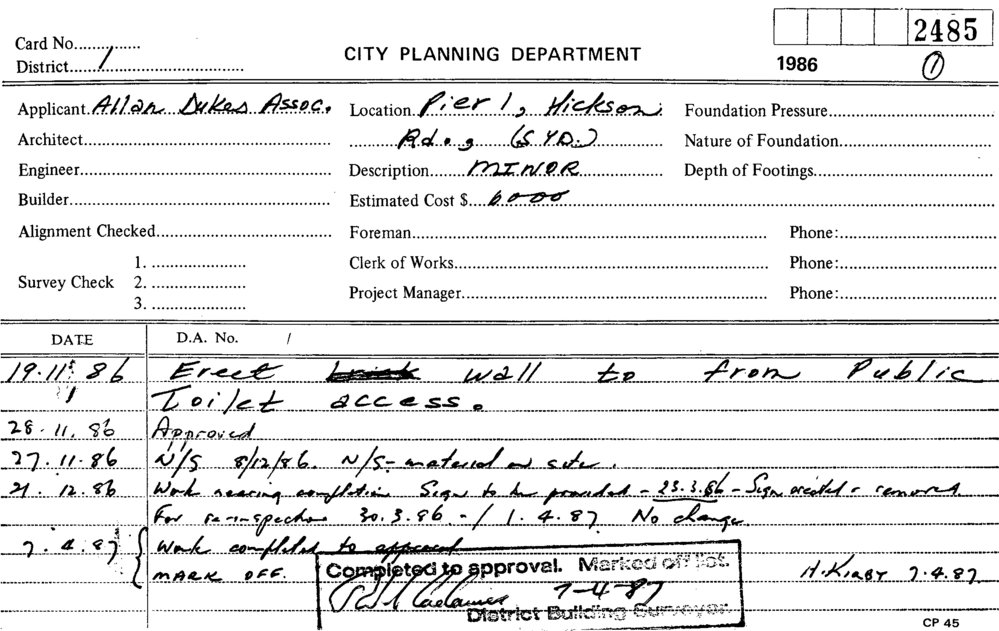 2485
Card No.
District 1
CITY PLANNING DEPARTMENT
1986
1
Applicant Allan Dukes Assoc. Location Pier 1, Hickson Foundation Pressure
Architect Rd., (SYD.) Nature of Foundation
Engineer Description MINOR Depth of Footings
Builder Estimated Cost $ 6000
Alignment Checked Foreman Phone:
1.
Clerk of Works Phone:
Survey Check 2.
Project Manager Phone:
3.
DATE D.A. No. /
19.11.86 Erect brick wall to from Public
Toilet access.
28.11.86 Approved
27.11.86 N/S 8/12/86. N/S - material on site.
21.12.86 Work nearing completion Sign to be provided - 23.3.86 - Sign erected - removed
For re-inspection 30.3.86 - / 1.4.87 No change
7.4.87 Work completed to approval
MARK OFF. H. KIRBY 7.4.87
Completed to approval. Marked off list.
7-4-87
District Building Surveyor.
CP 45